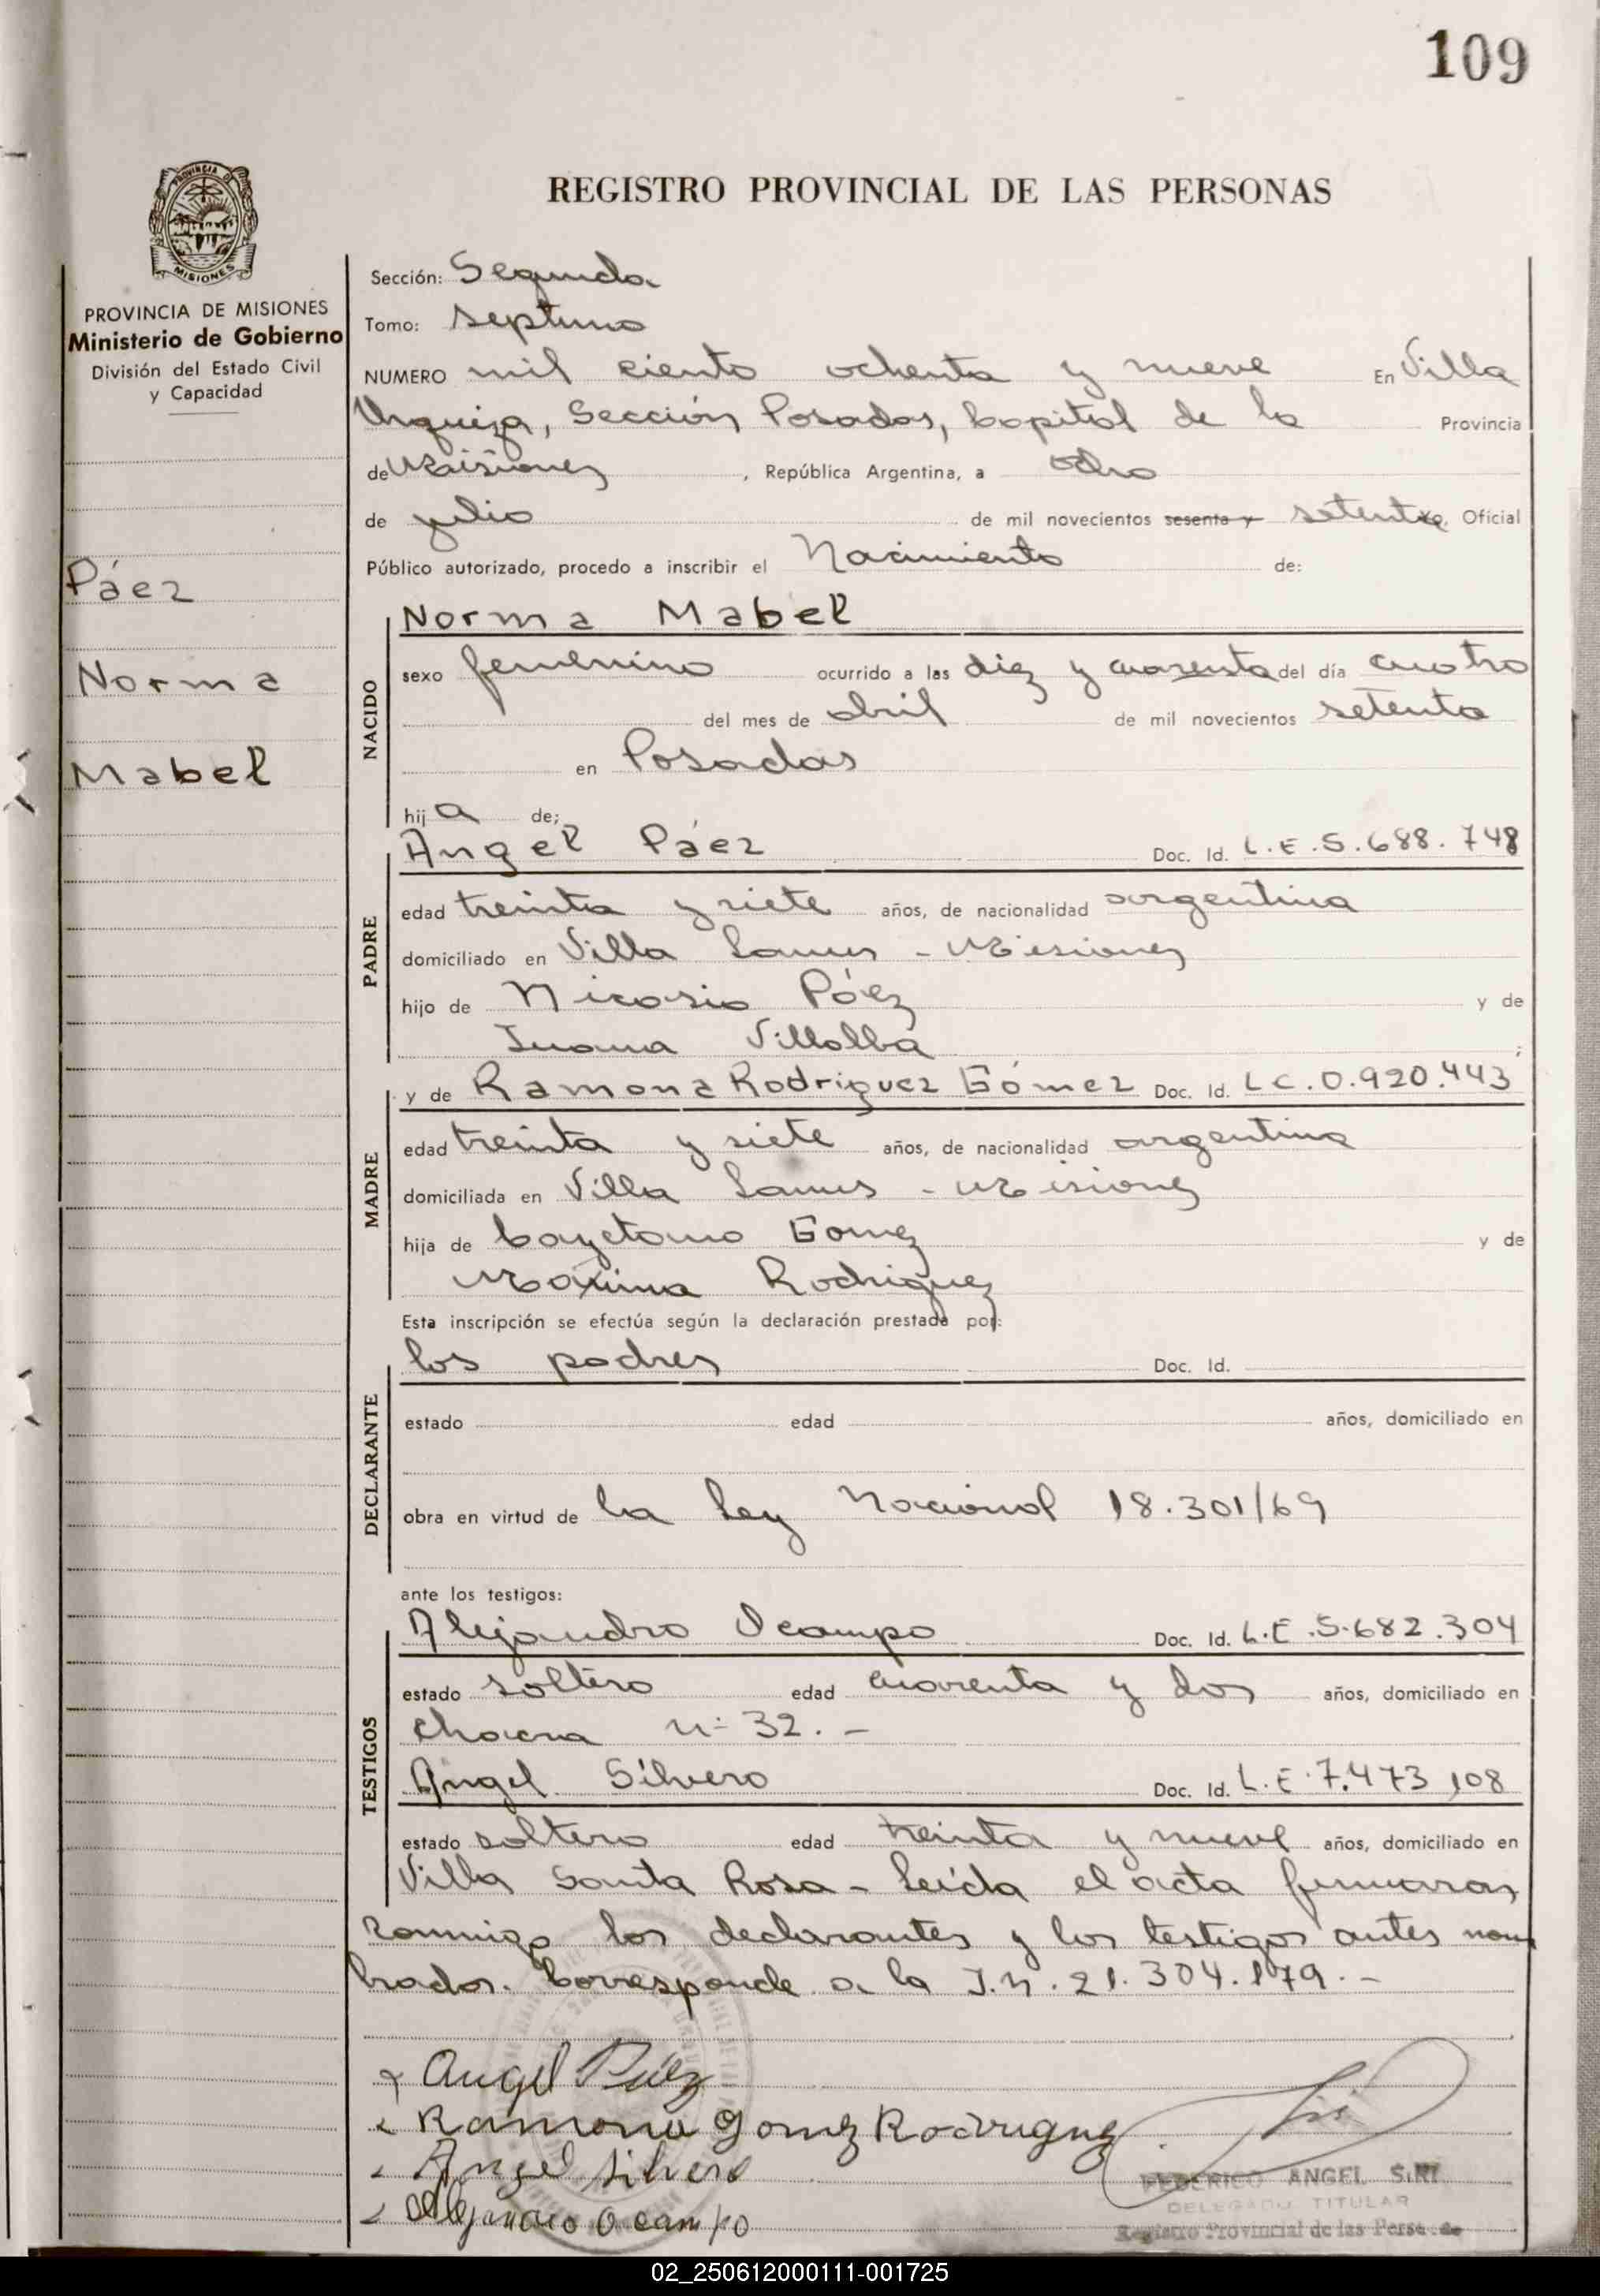 109
PROVINCIA DE
MISIONES
REGISTRO PROVINCIAL DE LAS PERSONAS
PROVINCIA DE MISIONES
Ministerio de Gobierno
División del Estado Civil
y Capacidad
Páez
Norma
Mabel
Sección: Segunda
Tomo: septimo
NUMERO mil ciento ochenta y nueve En Villa
Urquiza, Sección Posadas, Capital de la Provincia
de Misiones, República Argentina, a ocho
de julio de mil novecientos sesenta y setenta yo. Oficial
Público autorizado, procedo a inscribir el Nacimiento de:
NACIDO
Norma Mabel
sexo femenino ocurrido a las diez y cuarenta del día cuatro
del mes de abril de mil novecientos setenta
en Posadas
hija de;
PADRE
Angel Páez Doc. Id. L.E.5.688.748
edad treinta y siete años, de nacionalidad argentina
domiciliado en Villa Lanus - Misiones
hijo de Nicasio Páez y de
Juana Villalba ;
MADRE
y de Ramona Rodriguez Gómez Doc. Id. L C.0.920.443
edad treinta y siete años, de nacionalidad argentina
domiciliada en Villa Lanus - Misiones
hija de Cayetano Gomez y de
Maxima Rodriguez
Esta inscripción se efectúa según la declaración prestada por:
DECLARANTE
los padres Doc. Id.
estado edad años, domiciliado en
obra en virtud de la Ley Nacional 18.301/69
ante los testigos:
TESTIGOS
Alejandro Ocampo Doc. Id. L.E.5.682.304
estado soltero edad cuarenta y dos años, domiciliado en
chacra n: 32. -
Angel Silvero Doc. Id. L.E.7.473,108
estado soltero edad treinta y nueve años, domiciliado en
Villa Santa Rosa - Leída el acta firmaran
conmigo los declarantes y los testigos antes nom
brados. Corresponde a la I.N. 21.304.179. -
Angel Páez
Ramona Gomez Rodriguez
Angel Silvero
Alejandro Ocampo
FEDERICO ANGEL SIRI
DELEGADO TITULAR
Registro Provincial de las Personas
02_250612000111-001725